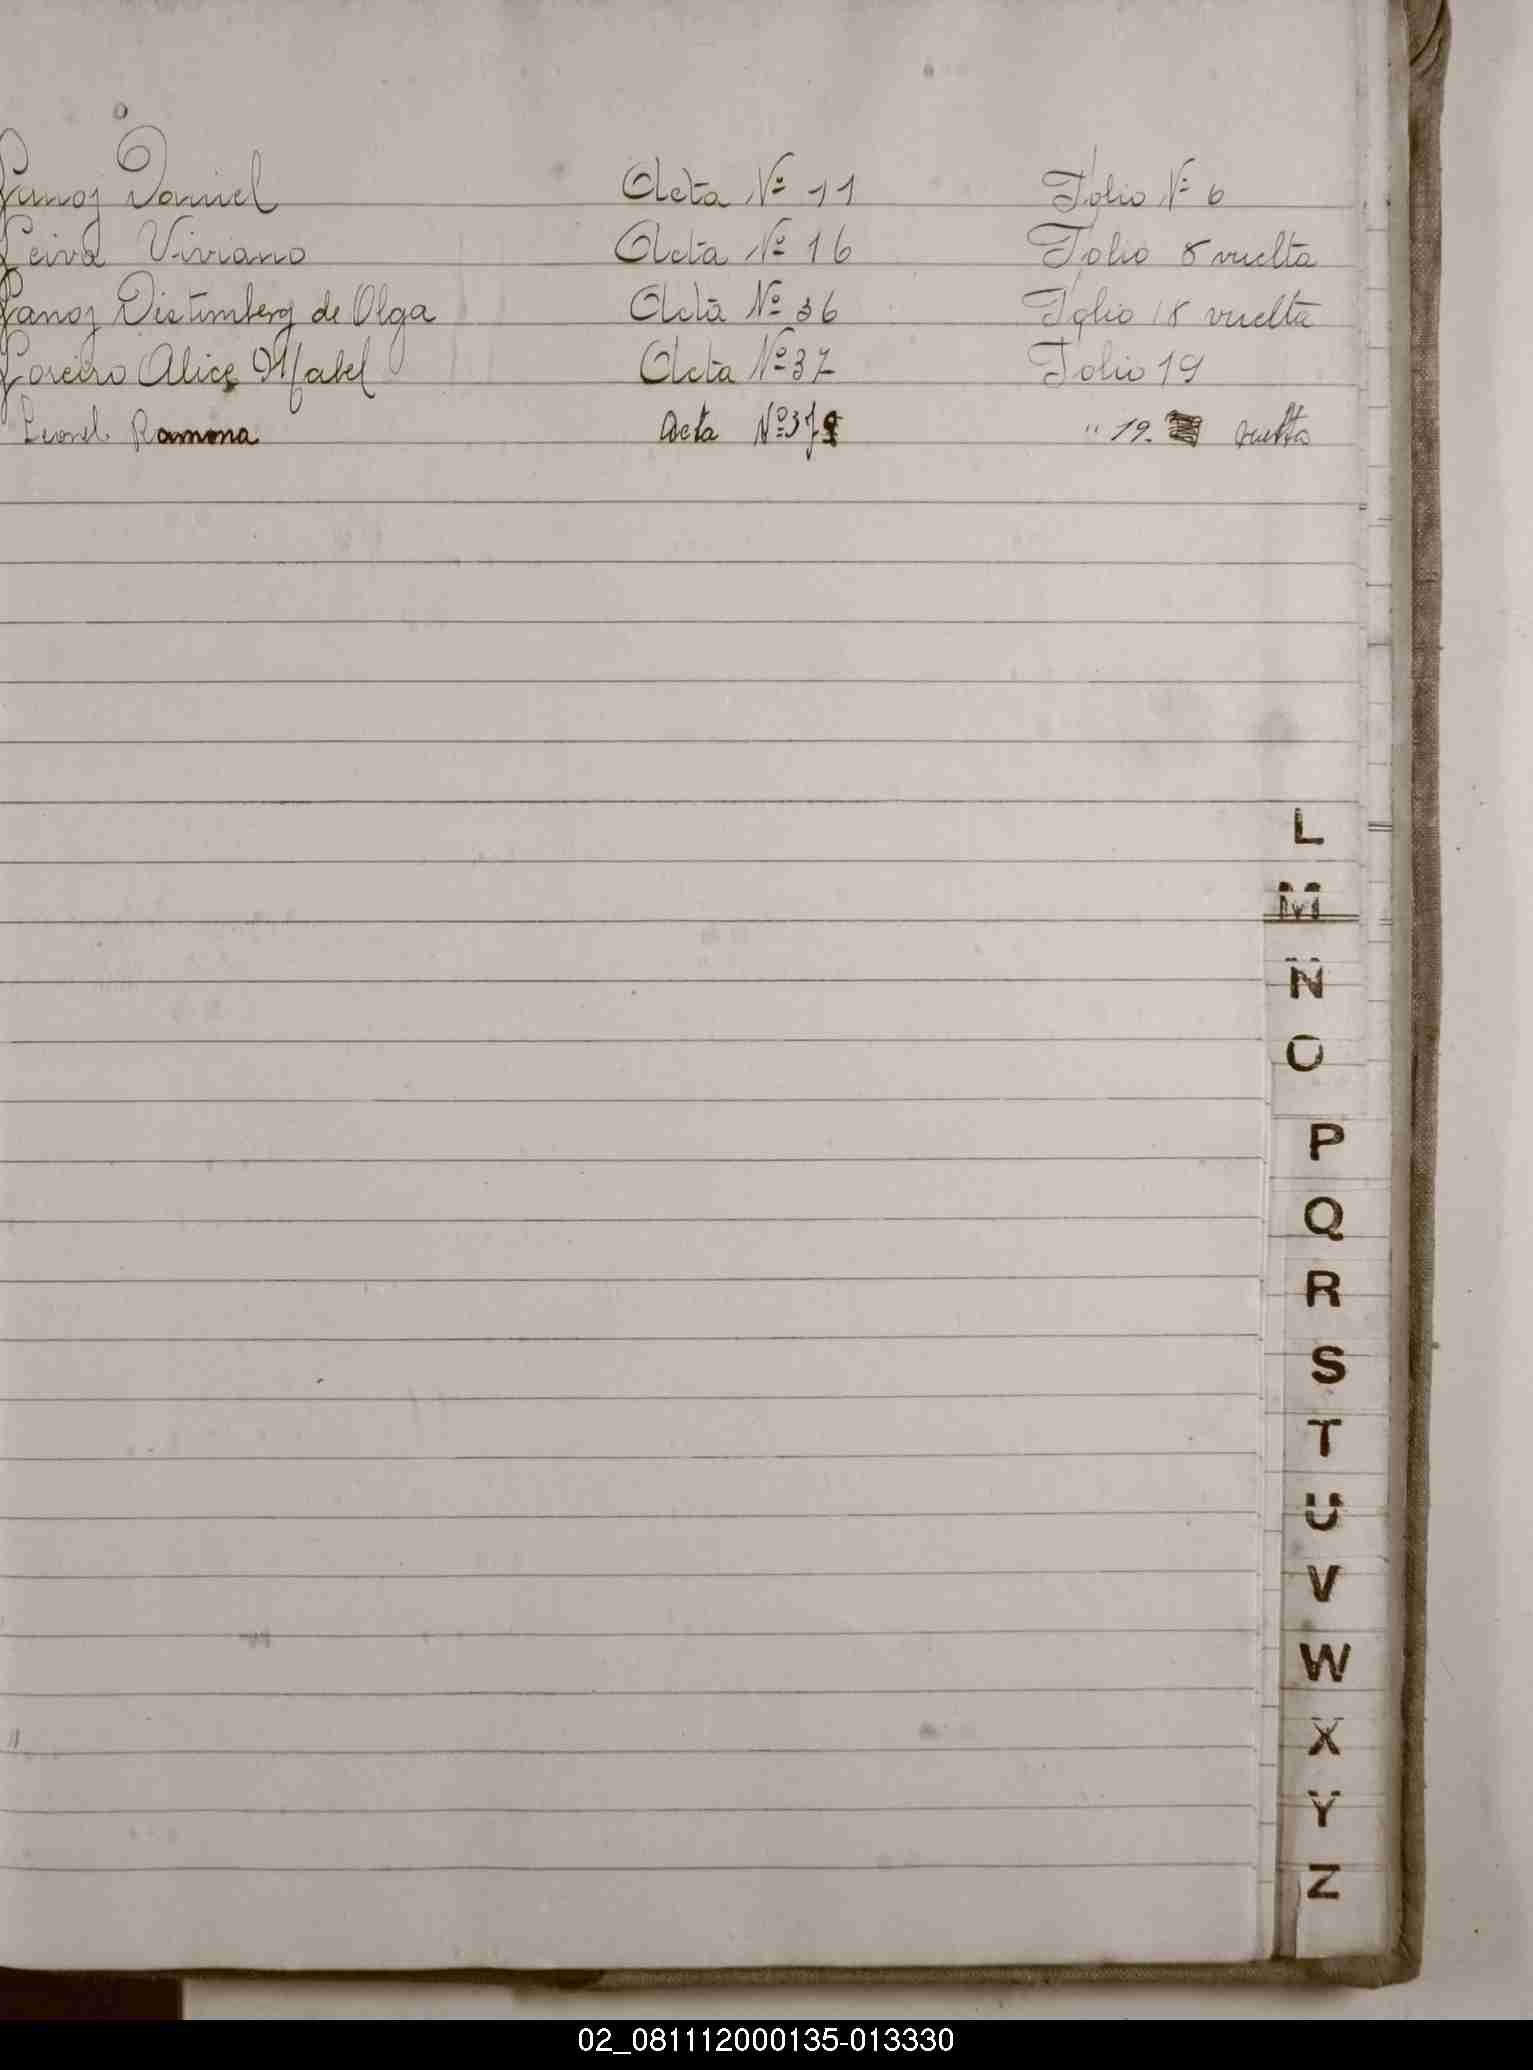 Daniel Acta Nº 11 Folio Nº 6
Leiva Viviano Acta Nº 16 Folio 8 vuelta
de Olga Acta Nº 36 Folio 18 vuelta
Loreiro Alice Mabel Acta Nº 37 Folio 19
Leonel Ramona Acta Nº " 19. vuelta
L
M
N
O
P
Q
R
S
T
U
V
W
X
Y
Z
02_081112000135-013330